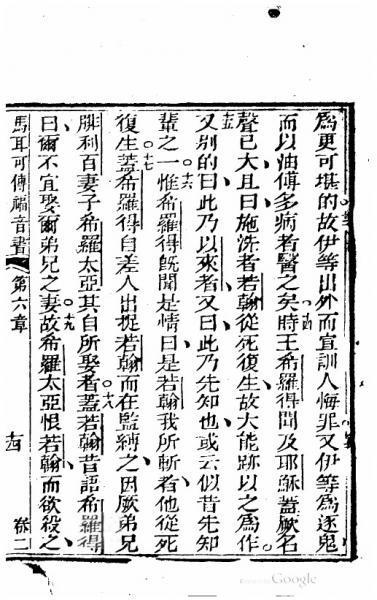 為更可堪的故伊等出外而宣訓人悔罪又伊等為逐鬼
而以油傅多病者醫之矣時王希羅得聞及耶穌蓋厥名
十四
聲已大且曰施洗者若翰從死復生故大能跡以之為作
十五
又別的曰此乃以來者又曰此乃先知也或云似昔先知
輩之一惟希羅得既聞是情曰是若翰我所斬者他從死
十六
復生蓋希羅得自差人出捉若翰而在監縛之因厥弟兄
十七
腓利百妻子希羅太亞其自所娶者蓋若翰昔語希羅得
十八
曰爾不宜娶爾弟兄之妻故希羅太亞恨若翰而欲殺之
十九
馬耳可傳福音書
第六章
卷二
Google